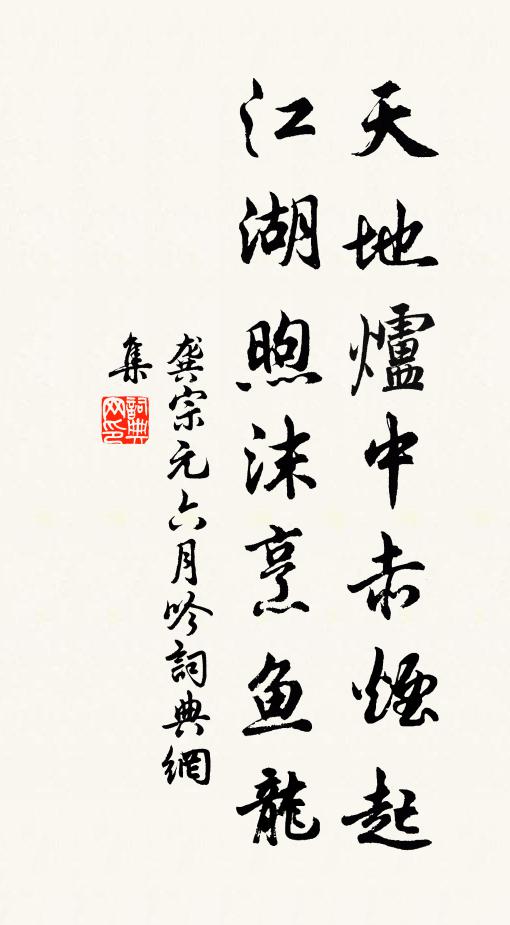 天地爐中赤煙起
江湖煦沫烹鱼龍
龔宗元六月吟詞典網
集
詞典
网印